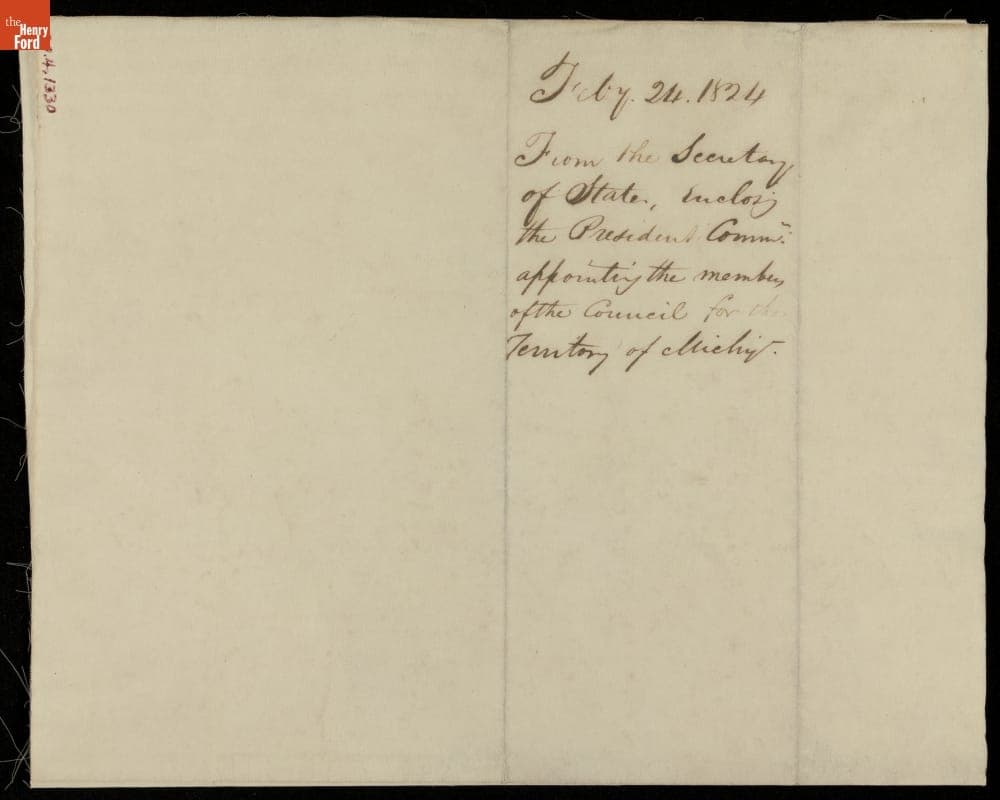 the
Henry
Ford
.4.1330
Feby. 24. 1824
From the Secretary
of State, enclosg
the President Commn:
appointing the members
of the Council for the
Territory of Michign.